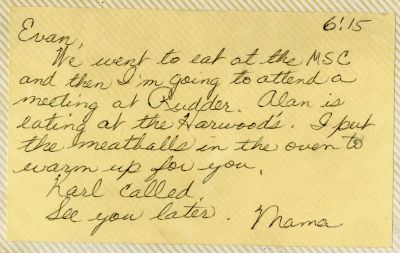 6:15
Evan,
We went to eat at the MSC
and then I'm going to attend a
meeting at Rudder. Alan is
eating at the Harwood's. I put
the meatballs in the oven to
warm up for you.
Karl called.
See you later. Mama